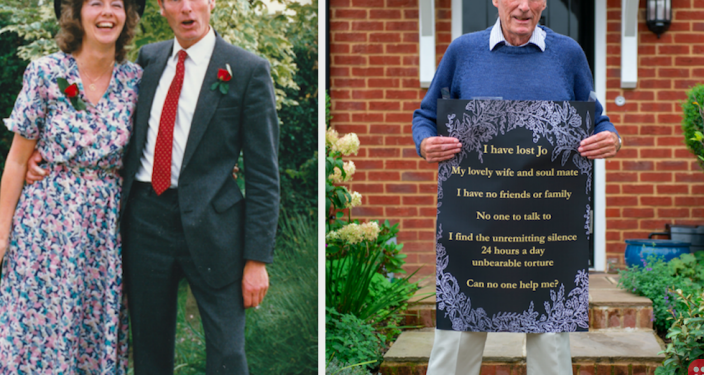 I have lost Jo
My lovely wife and soul mate
I have no friends or family
No one to talk to
I find the unremitting silence
24 hours a day
unbearable torture
Can no one help me?